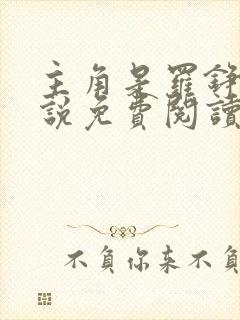 主角是羅錚
說免費閱讀
不負你來不負